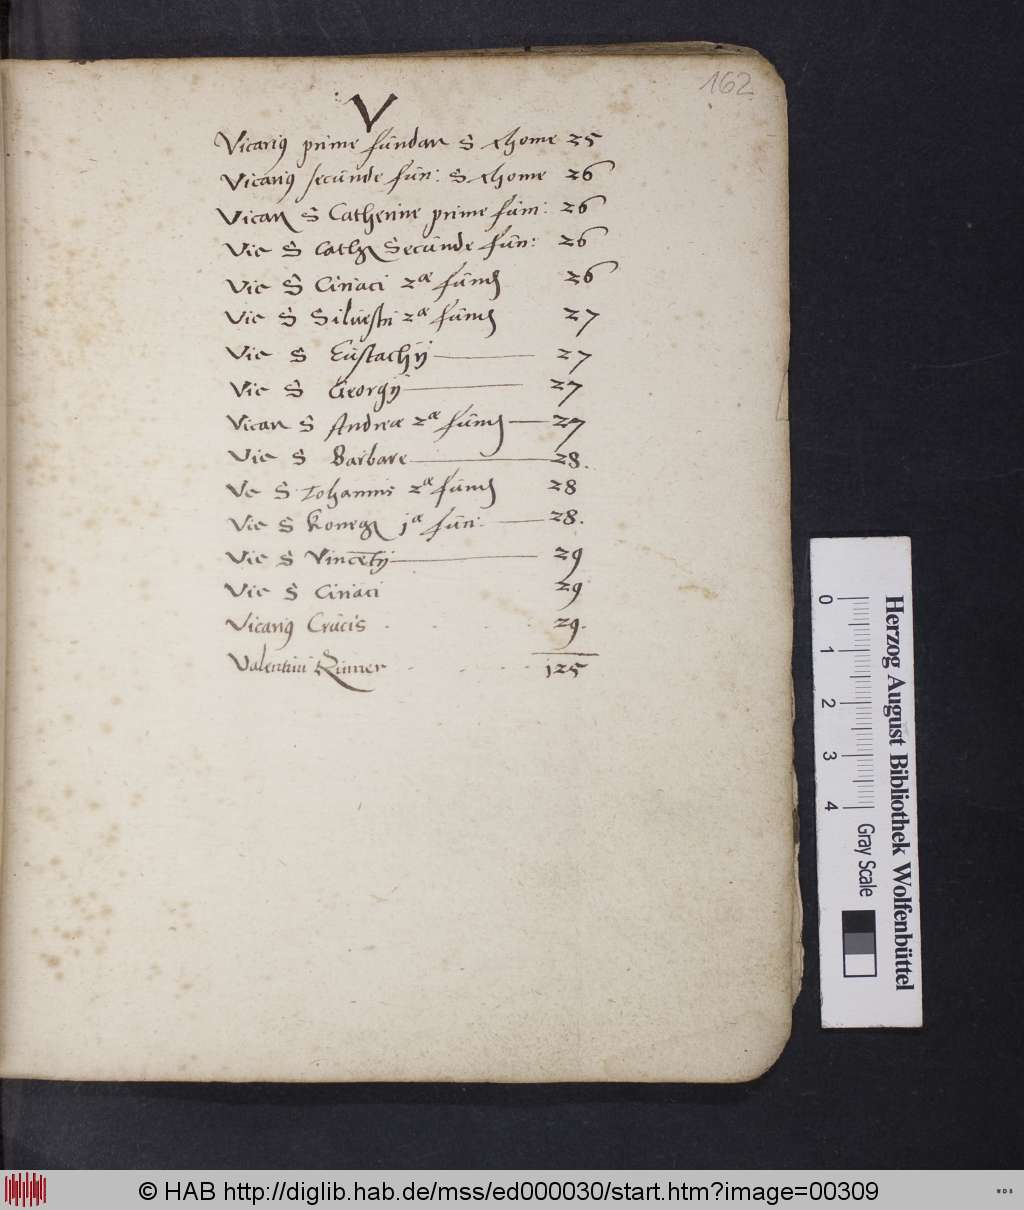 162
V
Vicarius prime fundan S Thome 25
Vicarius secunde fun: S Thome 26
Vicari S Catherine prime fun: 26
Vic S Cath Secunde fun: 26
Vic S Ciriaci 2æ fund 26
Vic S Silvestri 2æ fund 27
Vic S Eustachij 27
Vic S Georgij 27
Vicari S Andreæ 2æ fund 27
Vic S Barbare 28.
Vc S Johannis 2æ fund 28
Vic S 1æ fun: 28.
Vic S Vincetij 29
Vic S Ciriaci 29
Vicarius Crucis 29.
Valentini 125
0 1 2 3 4 Gray Scale
Herzog August Bibliothek Wolfenbüttel
© HAB http://diglib.hab.de/mss/ed000030/start.htm?image=00309
WDB